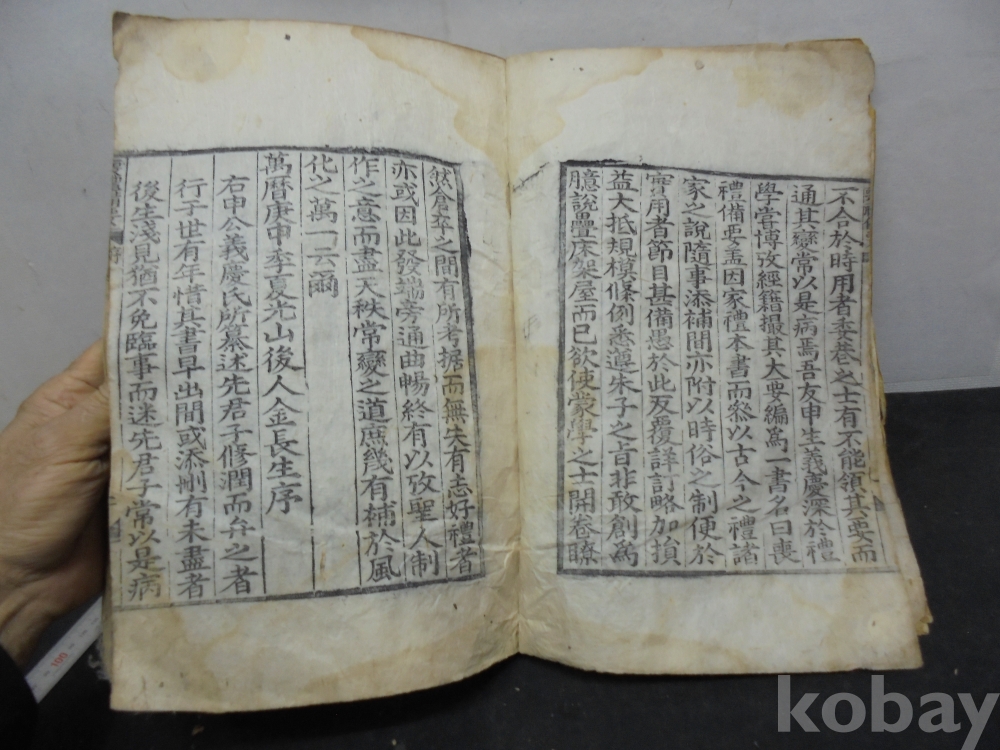 不合於時用者委巷之士有不能領其要而
通其變常以是病焉吾友申生義慶深於禮
學嘗博攷經籍撮其大要編爲一書名曰喪
禮備要盖因家禮本書而叅以古今之禮諸
家之說隨事添補間亦附以時俗之制便於
實用者節目甚備愚於此反覆詳訂略加損
益大抵規模條例悉遵朱子之旨非敢創爲
臆說疊床架屋而已欲使蒙學之士開卷瞭
然倉卒之間有所考据而無失有志好禮者
亦或因此發端旁通曲暢終有以攷聖人制
作之意而盡天秩常變之道庶幾有補於風
化之萬一云爾
萬曆庚申季夏光山後人金長生序
右申公義慶氏所纂述先君子修潤而弁之者
行于世有年惜其書早出間或添刪有未盡者
後生淺見猶不免臨事而迷先君子常以是病
kobay
100